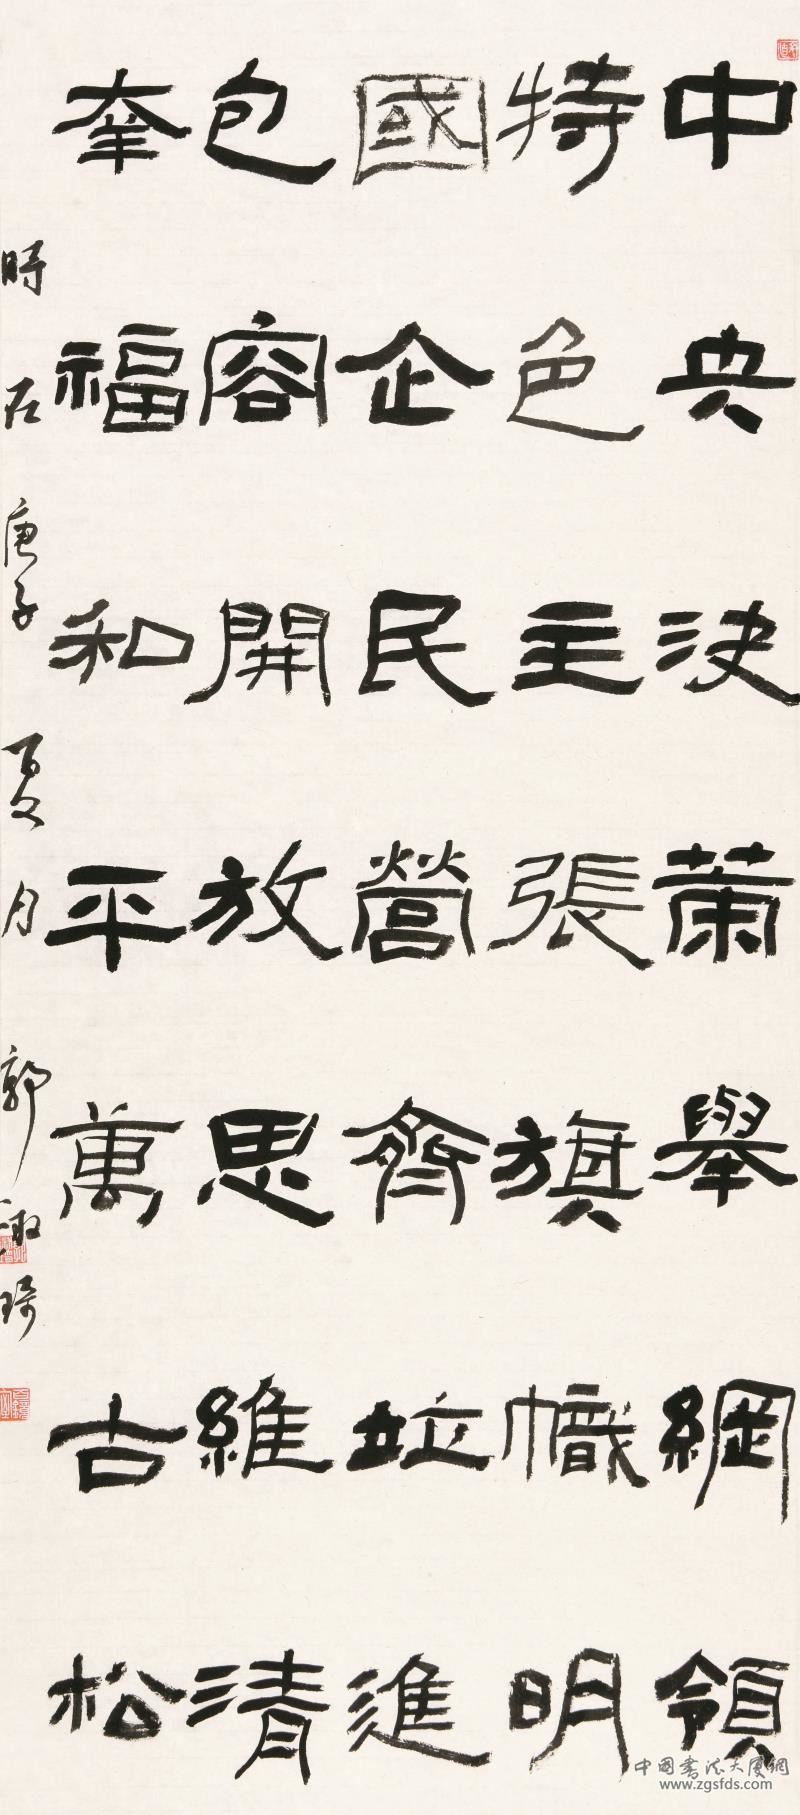 中央決策舉綱領
特色主張旗幟明
國企民營齊竝進
包容開放思維清
奉福和平萬古松
時在庚子夏月郭淑琦
中國書法大廈網
www.zgsfds.com